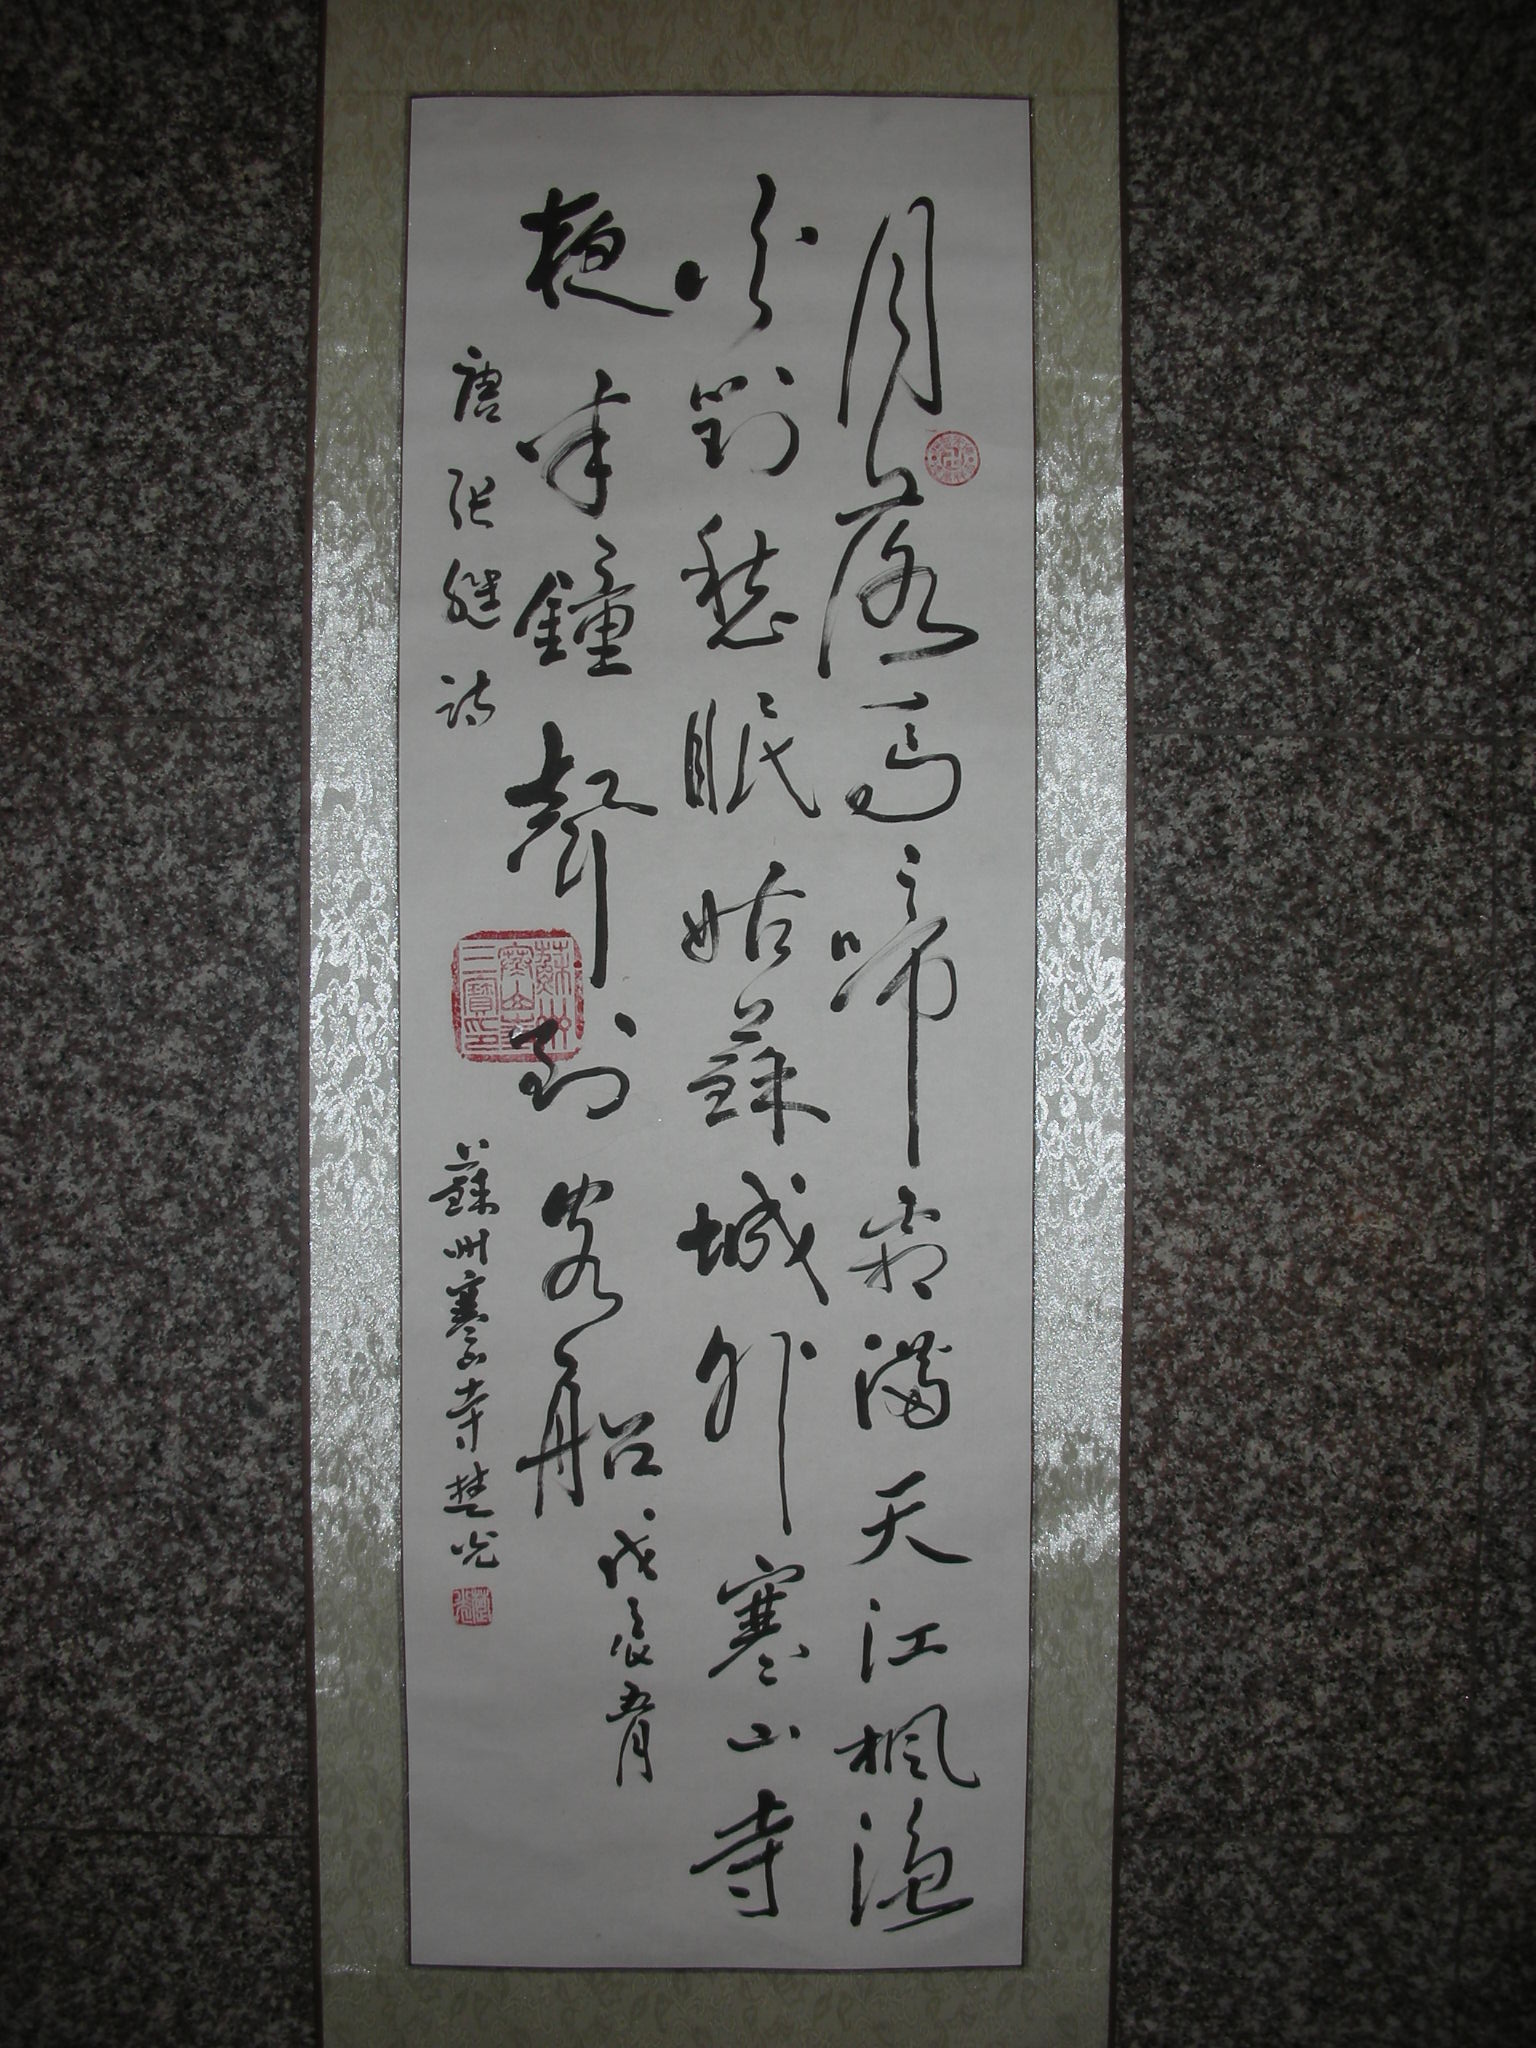 月落烏啼霜滿天江楓漁
火對愁眠姑蘇城外寒山寺
夜半鐘聲到客船
戊辰五月
唐張継詩
蘇州寒山寺楚光
蘇州寒山寺三寶印
楚光